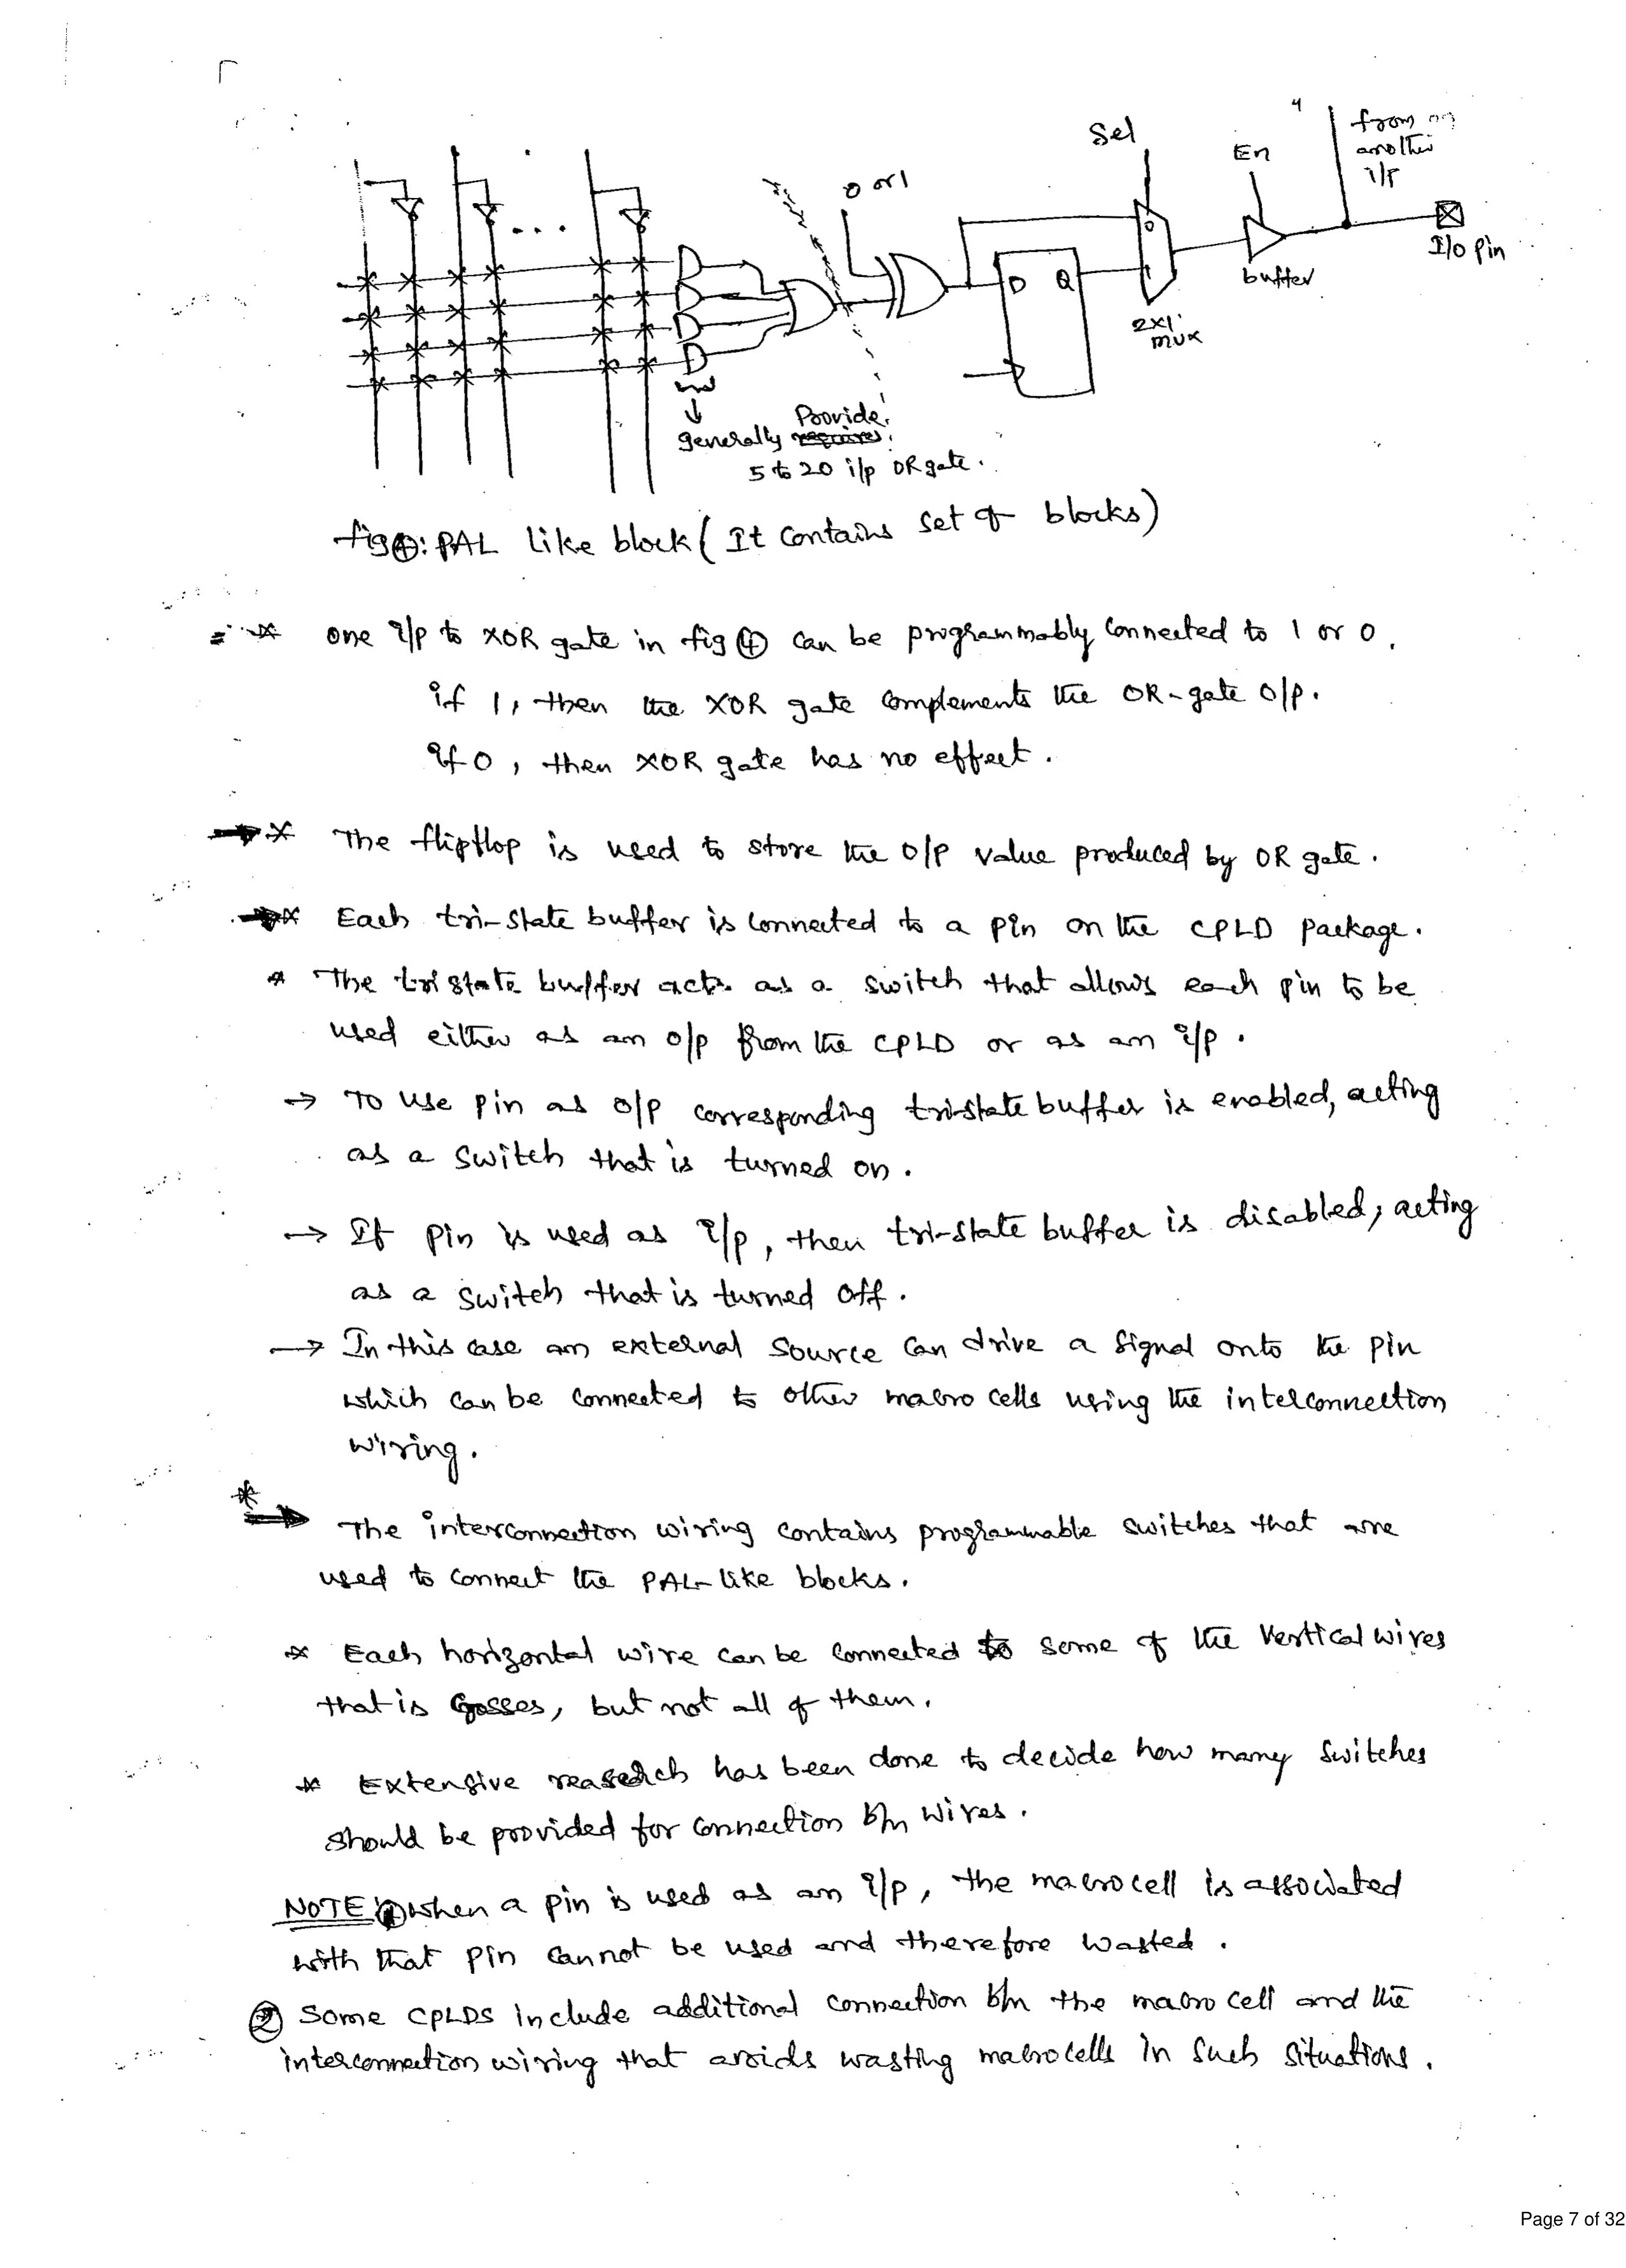 Sel
4
from
another
i/p
En
0 or 1
D Q
0
1
I/o pin
buffer
2x1
mux
generally Provide
5 to 20 i/p OR gate.
fig④: PAL like block ( It contains set of blocks)
* one i/p to XOR gate in fig ④ can be programmably connected to 1 or 0.
if 1, then the XOR gate complements the OR-gate o/p.
if 0, then XOR gate has no effect.
→* The flipflop is used to store the o/p value produced by OR gate.
→* Each tri-state buffer is connected to a pin on the CPLD package.
* The tri state buffer acts as a switch that allows each pin to be
used either as an o/p from the CPLD or as an i/p.
→ To use pin as o/p corresponding tri-state buffer is enabled, acting
as a switch that is turned on.
→ If pin is used as i/p, then tri-state buffer is disabled, acting
as a switch that is turned off.
→ In this case an external source can drive a signal onto the pin
which can be connected to other macro cells using the interconnection
wiring.
*
→ The interconnection wiring contains programmable switches that are
used to connect the PAL-like blocks.
* Each horizontal wire can be connected to some of the vertical wires
that is crosses, but not all of them.
* Extensive reaserch has been done to decide how many switches
should be provided for connection b/n wires.
NOTE ① when a pin is used as an i/p, the macrocell is associated
with that pin cannot be used and therefore wasted.
② Some CPLDS include additional connection b/n the macro cell and the
interconnection wiring that avoids wasting macrocells in such situations.
Page 7 of 32